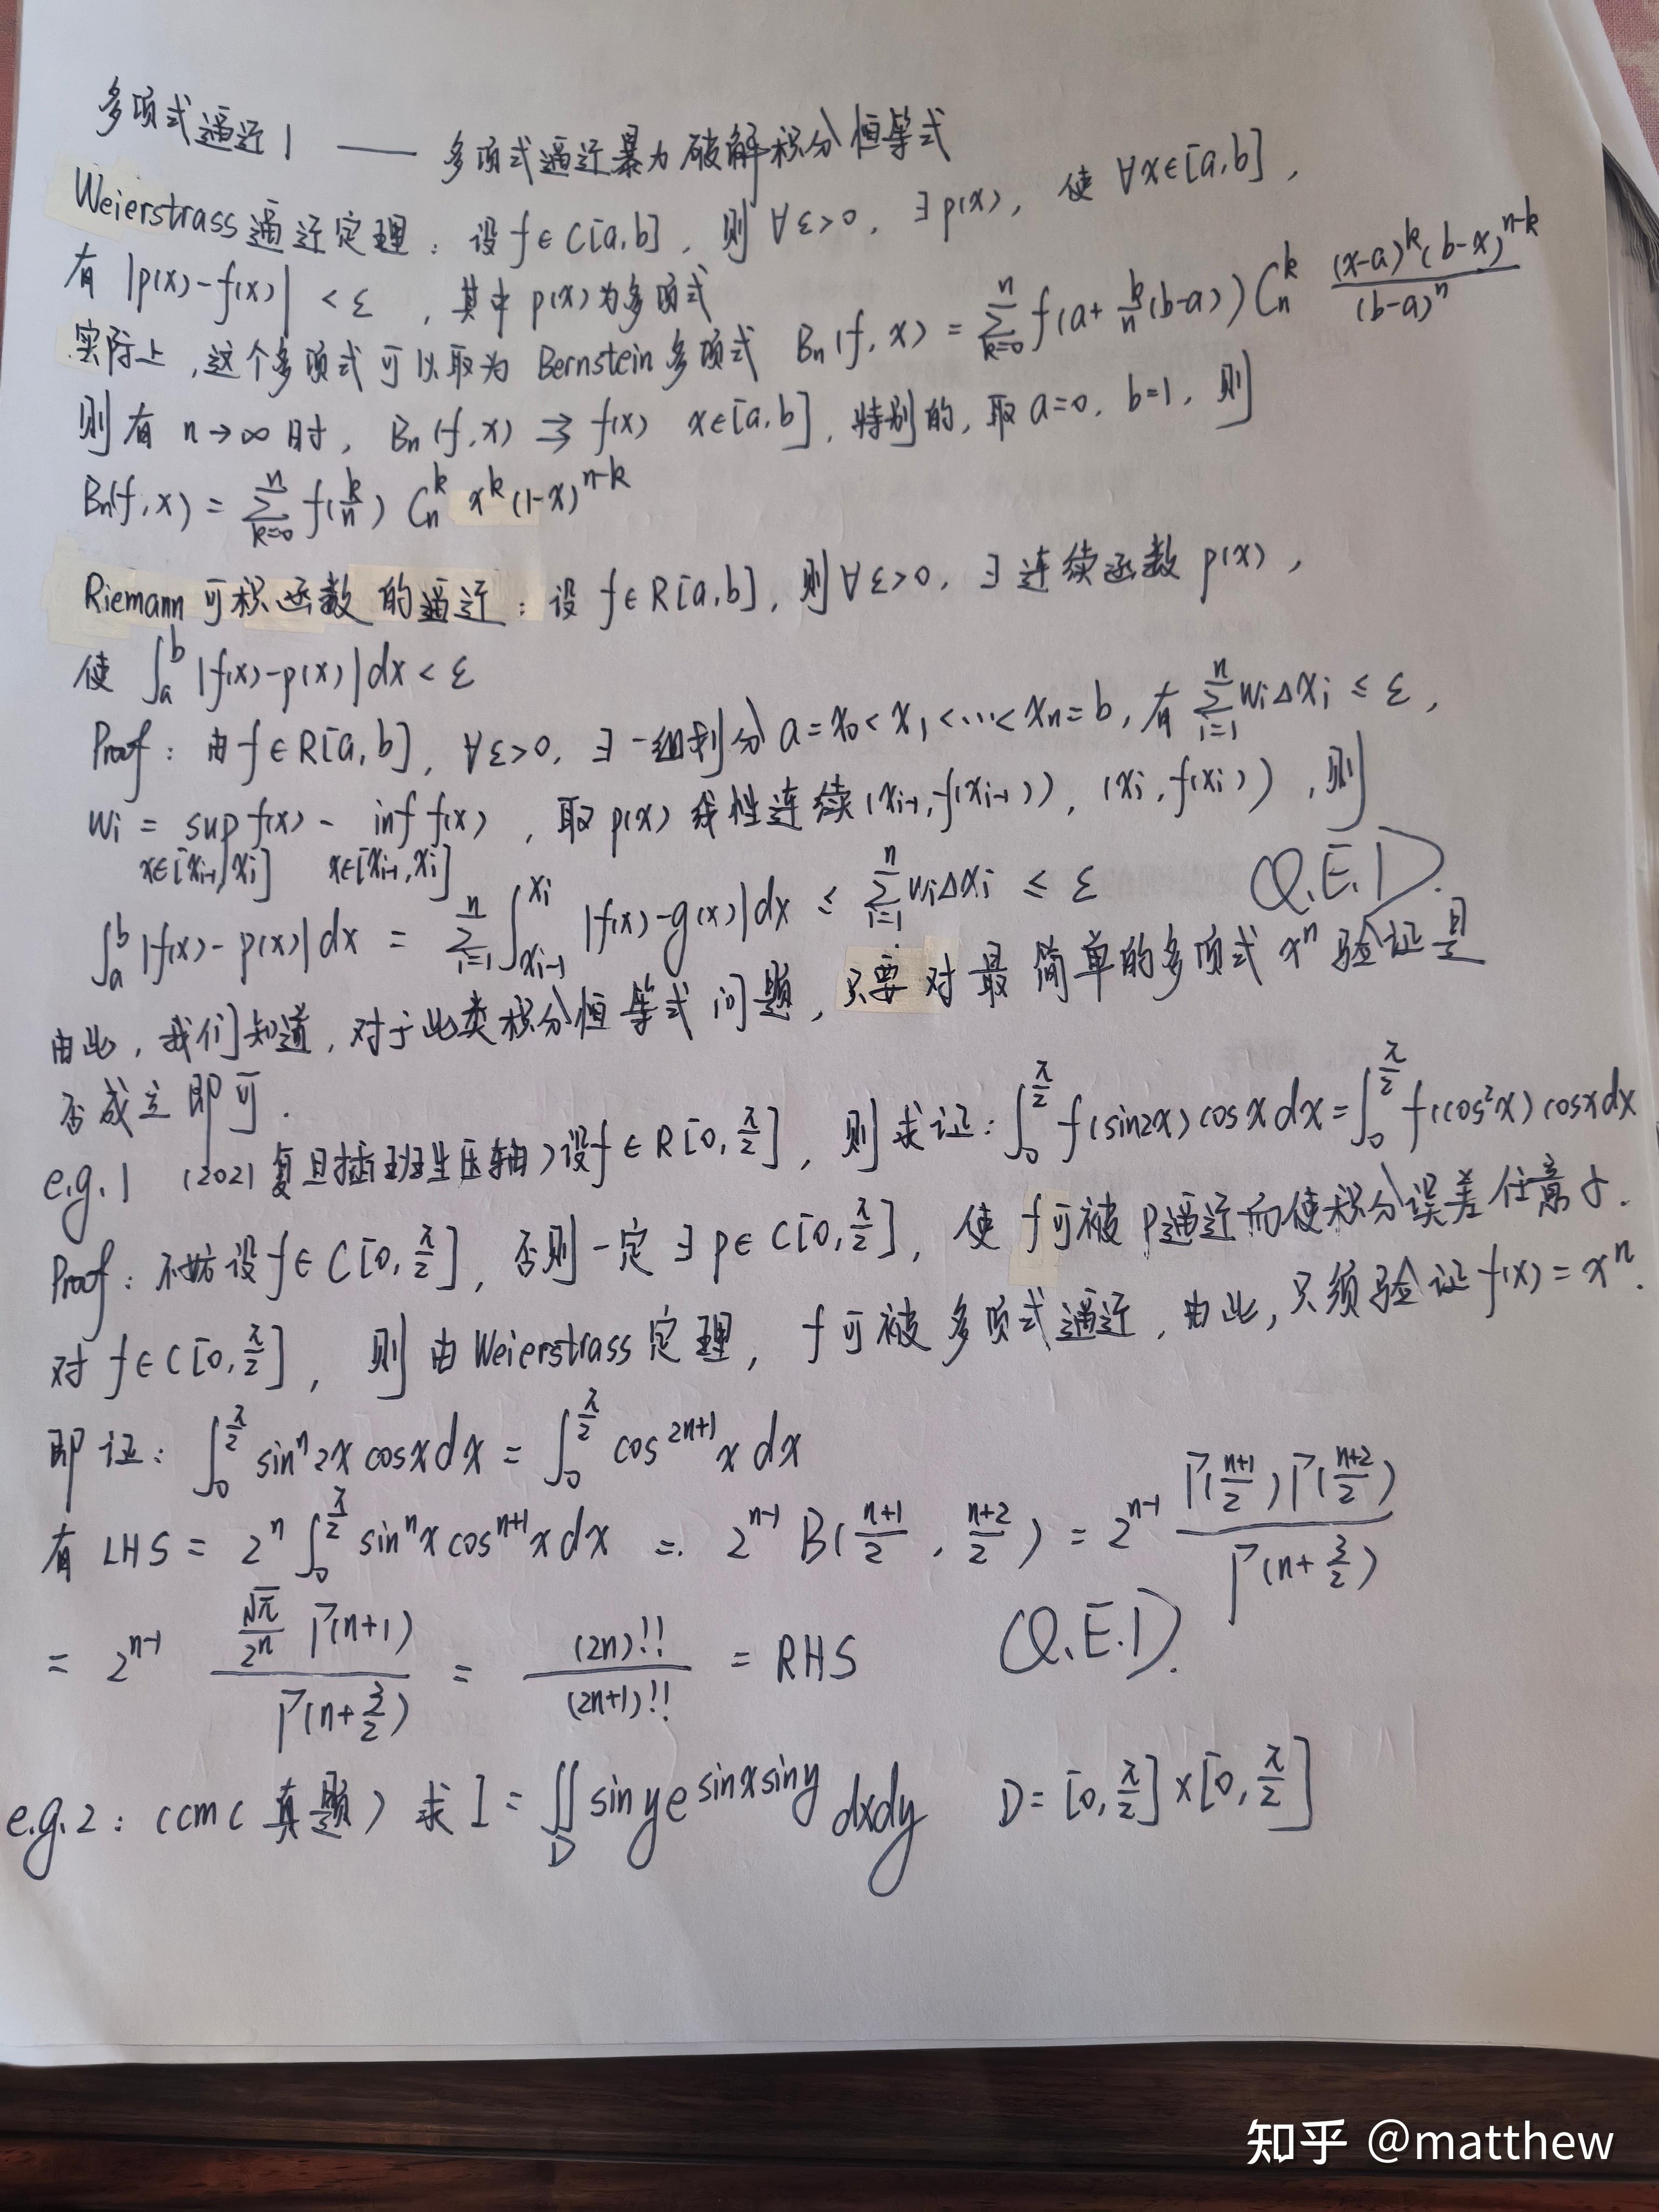 多项式逼近1 —— 多项式逼近暴力破解积分恒等式
Weierstrass逼近定理：设 f∈C[a,b]，则∀ε>0，∃p(x)，使 ∀x∈[a,b]，
有 |p(x)-f(x)| <ε，其中p(x)为多项式
实际上，这个多项式可以取为 Bernstein多项式 Bn(f,x) = ∑_{k=0}^{n} f(a+\frac{k}{n}(b-a)) C_n^k \frac{(x-a)^k(b-x)^{n-k}}{(b-a)^n}
则有 n→∞时，Bn(f,x) ⇉ f(x) x∈[a,b]，特别的，取a=0，b=1，则
Bn(f,x) = ∑_{k=0}^{n} f(\frac{k}{n}) C_n^k x^k(1-x)^{n-k}
Riemann可积函数的逼近：设 f∈R[a,b]，则∀ε>0，∃连续函数p(x)，
使 ∫_a^b |f(x)-p(x)|dx<ε
Proof：由f∈R[a,b]，∀ε>0，∃一组划分a=x_0<x_1<…<x_n=b，有 ∑_{i=1}^{n} w_iΔx_i ≤ε，
w_i = sup_{x∈[x_{i-1},x_i]} f(x) - inf_{x∈[x_{i-1},x_i]} f(x)，取p(x)线性连续(x_{i-1},f(x_{i-1}))，(x_i,f(x_i))，则
∫_a^b |f(x)-p(x)|dx = ∑_{i=1}^{n} ∫_{x_{i-1}}^{x_i} |f(x)-g(x)|dx ≤ ∑_{i=1}^{n} w_iΔx_i ≤ ε Q.E.D.
由此，我们知道，对于此类积分恒等式问题，只要对最简单的多项式x^n验证是
否成立即可.
e.g.1 (2021复旦插班生压轴)设f∈R[0,\frac{π}{2}]，则求证：∫_0^{\frac{π}{2}} f(sin2x)cosxdx=∫_0^{\frac{π}{2}} f(cos^2x)cosxdx
Proof：不妨设f∈C[0,\frac{π}{2}]，否则一定∃p∈C[0,\frac{π}{2}]，使f可被P逼近而使积分误差任意小.
对f∈C[0,\frac{π}{2}]，则由Weierstrass定理，f可被多项式逼近，由此，只须验证f(x)=x^n.
即证：∫_0^{\frac{π}{2}} sin^n2xcosxdx = ∫_0^{\frac{π}{2}} cos^{2n+1}xdx
有LHS = 2^n ∫_0^{\frac{π}{2}} sin^nxcos^{n+1}xdx = 2^{n-1} B(\frac{n+1}{2}, \frac{n+2}{2}) = 2^{n-1} \frac{Γ(\frac{n+1}{2})Γ(\frac{n+2}{2})}{Γ(n+\frac{3}{2})}
= 2^{n-1} \frac{\frac{\sqrt{π}}{2^n}Γ(n+1)}{Γ(n+\frac{3}{2})} = \frac{(2n)!!}{(2n+1)!!} = RHS Q.E.D.
e.g.2：(cmc真题)求I=∬_D sinye^{sinxsiny}dxdy D=[0,\frac{π}{2}]×[0,\frac{π}{2}]
知乎 @matthew